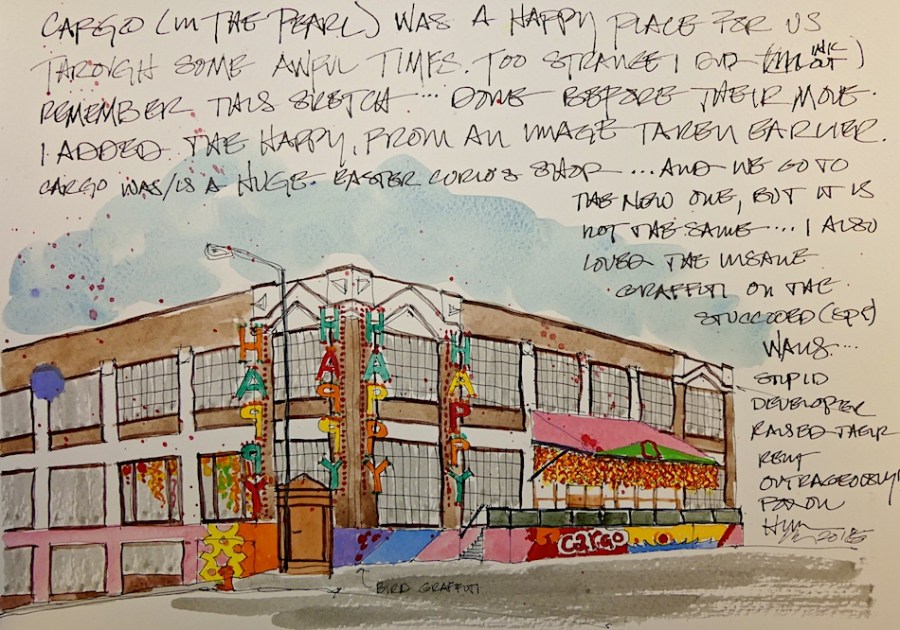 CARGO (IN THE PEARL) WAS A HAPPY PLACE FOR US
THROUGH SOME AWFUL TIMES. TOO STRANGE I DID INK OUT)
REMEMBER THIS SKETCH ... DONE BEFORE THEIR MOVE.
I ADDED THE HAPPY, FROM AN IMAGE TAKEN EARLIER.
CARGO WAS/IS A HUGE EASTER CURIO'S SHOP ... AND WE GO TO
THE NEW ONE, BUT IT IS
NOT THE SAME ... I ALSO
LOVED THE INSANE
GRAFFITI ON THE
STUCCOED (SP?)
WALLS....
STUPID
DEVELOPER
RAISED THEIR
RENT
OUTRAGEOUSLY!
POX ON
2015
HAPPY
HAPPY
HAPPY
HAPPY
cargo
BIRD GRAFFITI